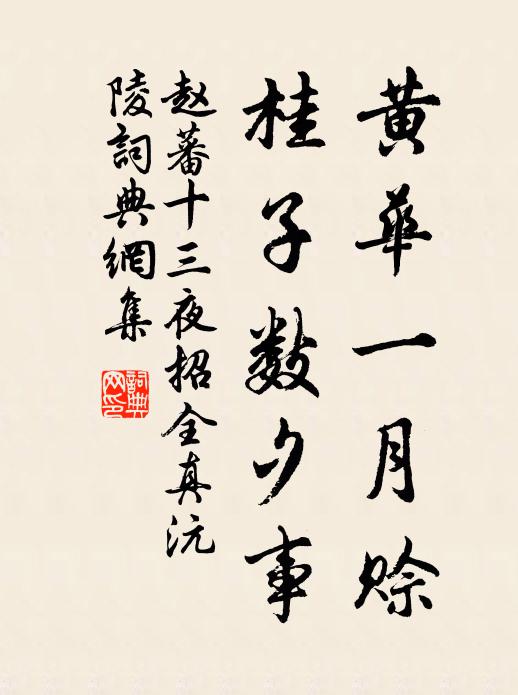 黄華一月赊
桂子数夕事
赵蕃十三夜招全真沅
陵詞典網集
詞典
网印